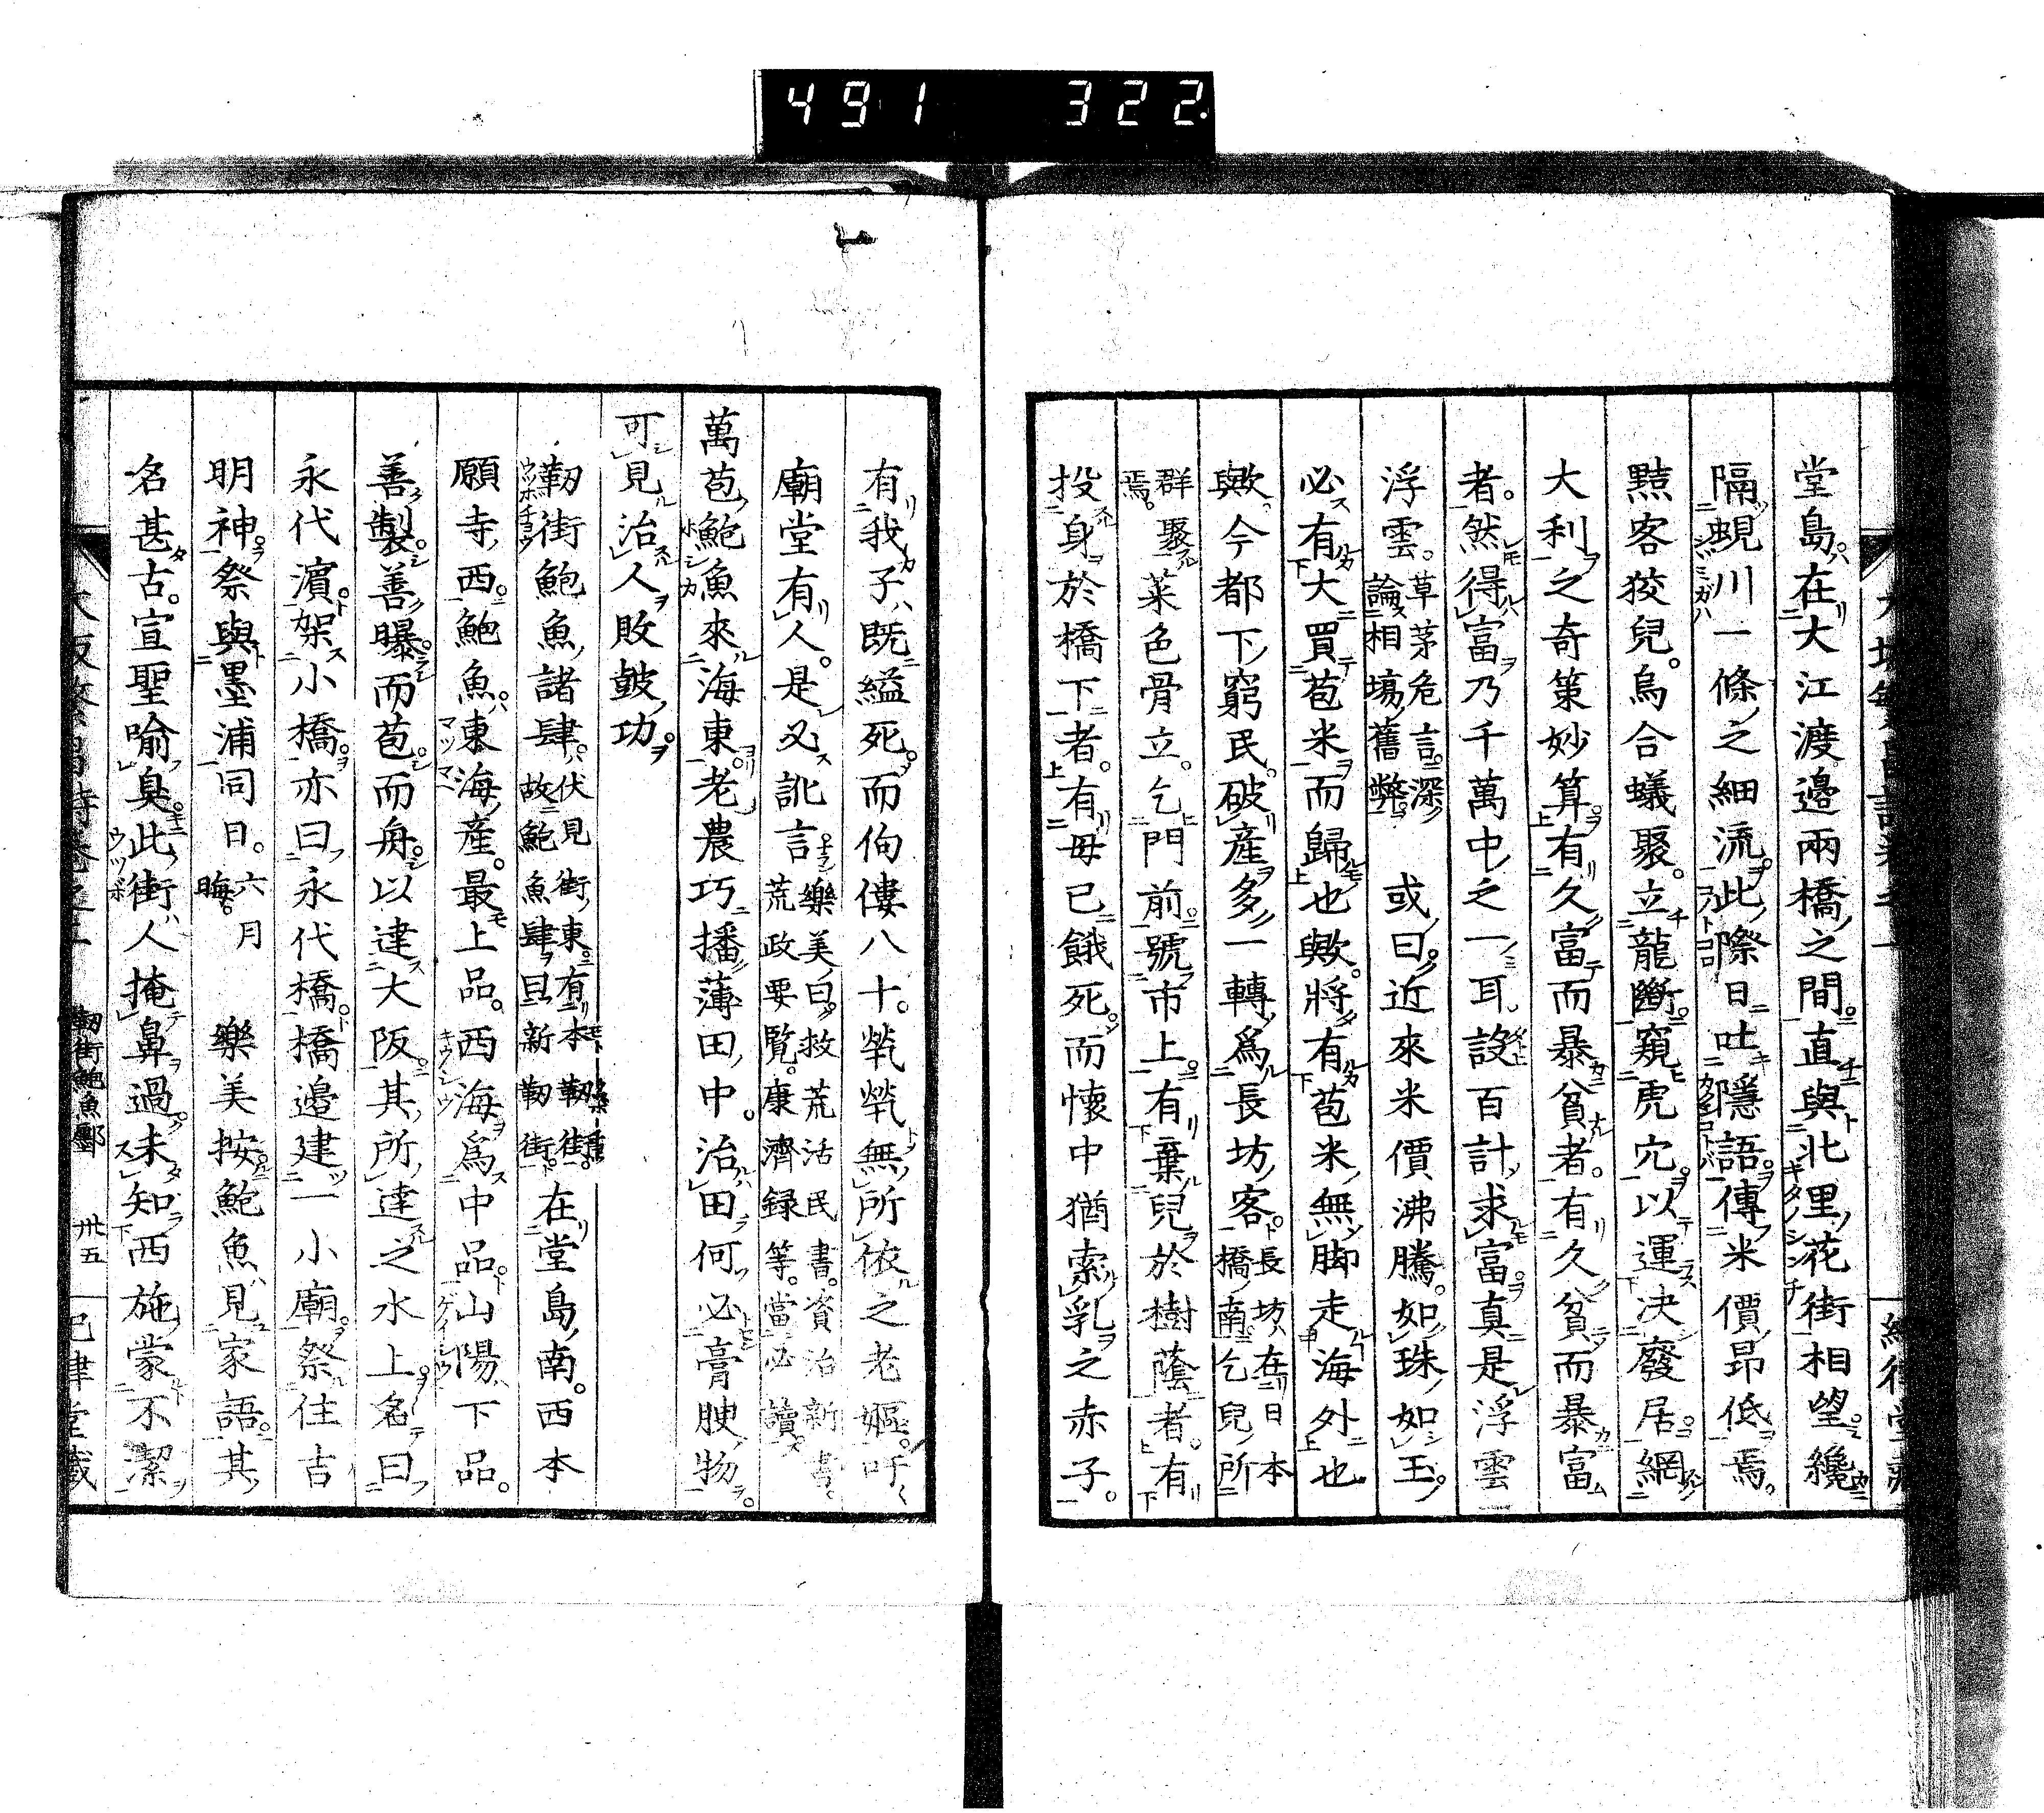 491 322
堂島在大江渡邊兩橋之間直與北里花街相望纔
隔蜆川一條之細流此際日吐隱語傳米價昂低焉
黠客狡兒烏合蟻聚立龍斷窺虎穴以運決廢居網
大利之奇策妙算有久富而暴貧者有久貧而暴富
者然得富乃千萬中之一耳設百計求富真是浮雲
浮雲草茅危言深論相塲舊弊或曰近來米價沸騰如珠如玉
必有大買苞米而歸也歟將有苞米無脚走海外也
歟今都下窮民破產多一轉爲長坊客長坊在日本橋南乞兒所
群聚焉菜色骨立乞門前號市上有棄兒於樹蔭者有
投身於橋下者有母已餓死而懷中猶索乳之赤子
有我子既縊死而佝僂八十煢煢無所依之老嫗吁
廟堂有人是又訛言樂美曰救荒活民書資治新書荒政要覽康濟録等當必讀
萬苞鮑魚來海東老農巧播薄田中治田何必膏腴物
可見治人敗鼓功
靭街鮑魚諸肆伏見街東有本靭街故鮑魚肆曰新靭街在堂島南西本
願寺西鮑魚東海產最上品西海爲中品山陽下品
善製善曝而苞而舟以達大阪其所達之水上名曰
永代濱架小橋亦曰永代橋橋邉建一小廟祭住吉
明神祭與墨浦同日六月晦樂美按鮑魚見家語其
名甚古宣聖喻臭此街人掩鼻過未知西施蒙不潔
靭街鮑魚鄽 卅五